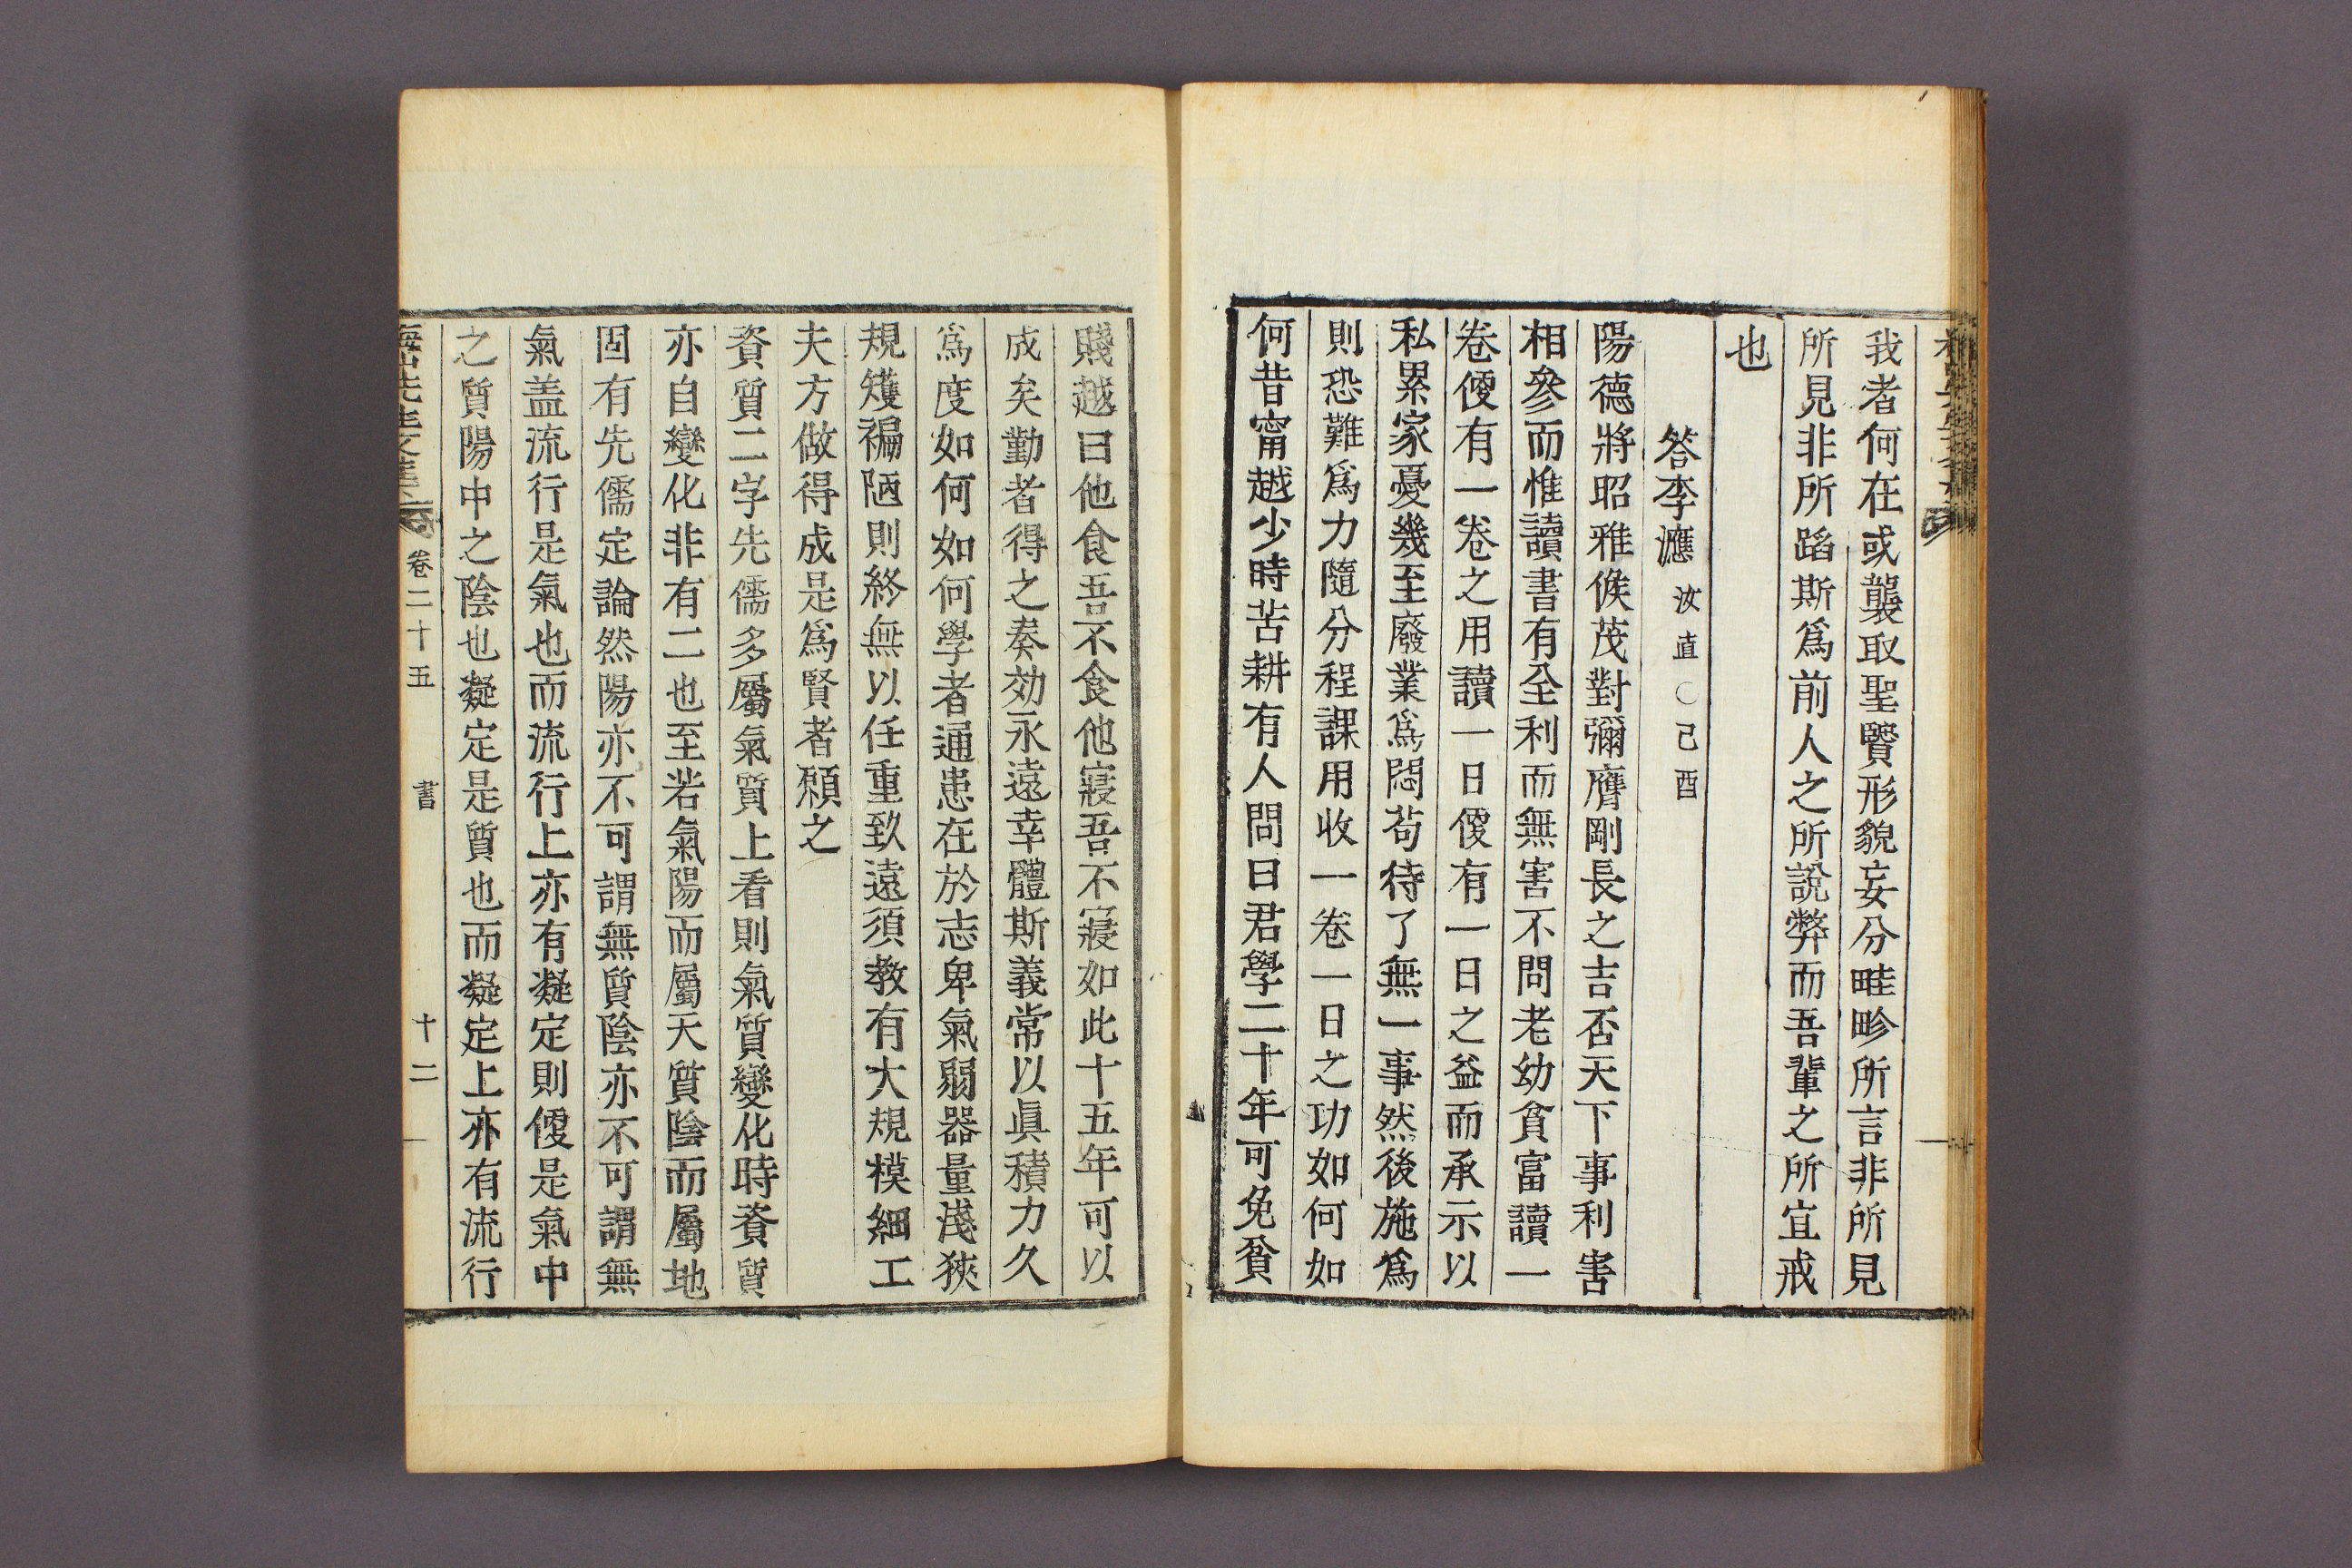 我者何在或襲取聖賢形貌妄分畦畛所言非所見
所見非所蹈斯爲前人之所說弊而吾輩之所宜戒
也
答李應汝直○己酉
陽德將昭雅候茂對彌膺剛長之吉否天下事利害
相參而惟讀書有全利而無害不問老幼貪富讀一
卷便有一卷之用讀一日便有一日之益而承示以
私累家憂幾至廢業爲悶苟待了無一事然後施爲
則恐難爲力隨分程課用收一卷一日之功如何如
何昔甯越少時苦耕有人問曰君學二十年可免貧
賤越曰他食吾不食他寢吾不寢如此十五年可以
成矣勤者得之奏効永遠幸體斯義常以眞積力久
爲度如何如何學者通患在於志卑氣弱器量淺狹
規矱褊陋則終無以任重致遠須敎有大規模細工
夫方做得成是爲賢者願之
資質二字先儒多屬氣質上看則氣質變化時資質
亦自變化非有二也至若氣陽而屬天質陰而屬地
固有先儒定論然陽亦不可謂無質陰亦不可謂無
氣盖流行是氣也而流行上亦有凝定則便是氣中
之質陽中之陰也凝定是質也而凝定上亦有流行
卷二十五 書 十二